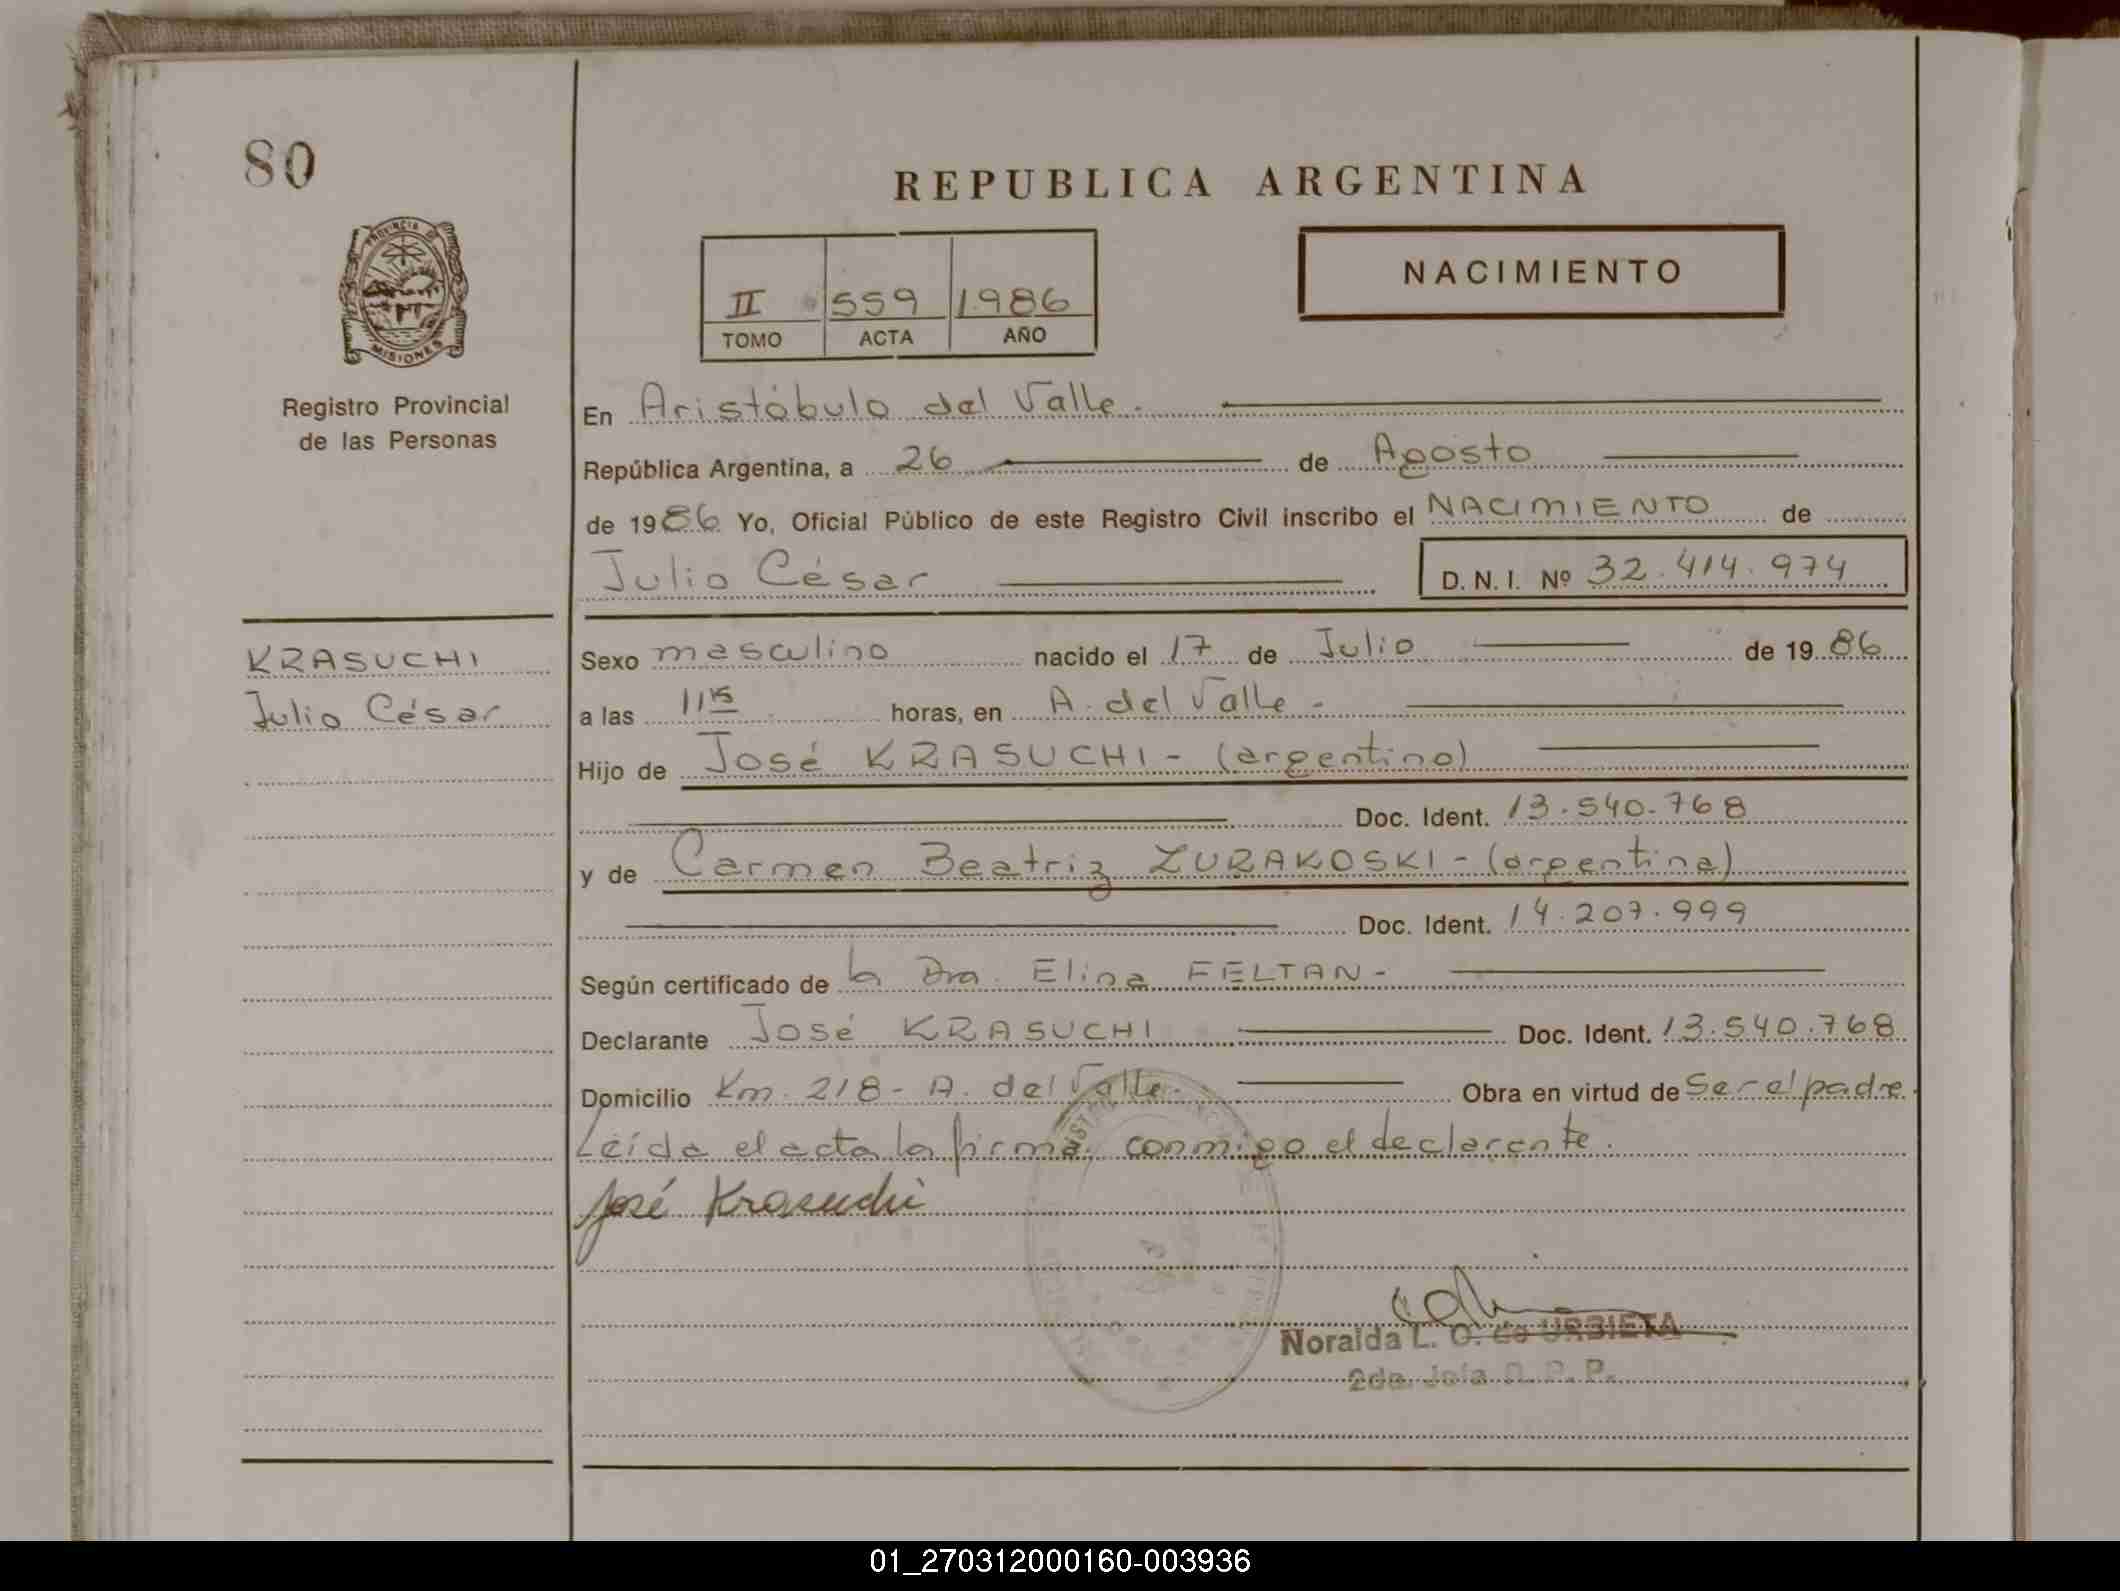 80
REPUBLICA ARGENTINA
PROVINCIA DE
MISIONES
II 559 1986
TOMO ACTA AÑO
NACIMIENTO
Registro Provincial
de las Personas
En Aristóbulo del Valle.
República Argentina, a 26 de Agosto
de 1986 Yo, Oficial Público de este Registro Civil inscribo el NACIMIENTO de
Julio César D. N. I. Nº 32.414.974
KRASUCHI
Julio César
Sexo masculino nacido el 17 de Julio de 1986
a las 11 15 horas, en A. del Valle -
Hijo de José KRASUCHI - (argentino)
Doc. Ident. 13.540.768
y de Carmen Beatriz ZURAKOSKI - (argentina)
Doc. Ident. 14.207.999
Según certificado de la Dra. Elina FELTAN -
Declarante José KRASUCHI Doc. Ident. 13.540.768
Domicilio Km. 218 - A. del Valle. Obra en virtud de Ser el padre.
Leída el acta la firma conmigo el declarante.
José Krasuchi
Noralda L. O. de URBIETA
2da. Jefa R. P. P.
01_270312000160-003936